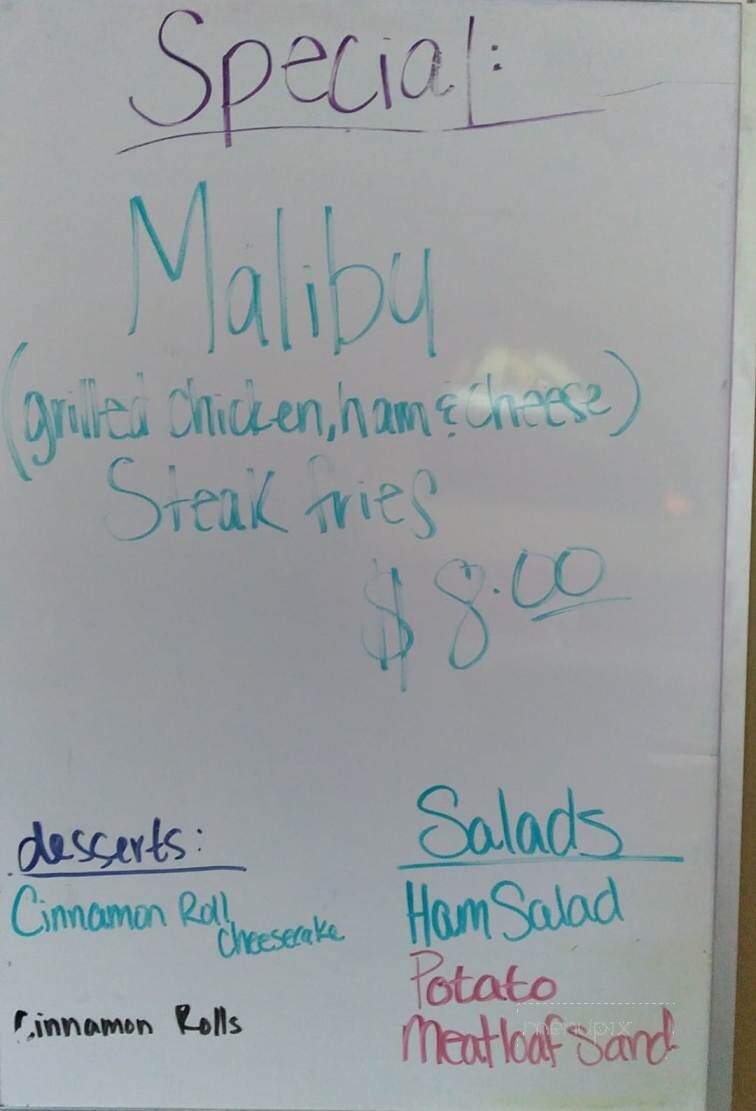 Special:
Malibu
(grilled chicken, ham & cheese)
Steak fries
$8.00
desserts:
Cinnamon Roll
Cheesecake
Cinnamon Rolls
Salads
Ham Salad
Potato
Meatloaf Sand
menupix